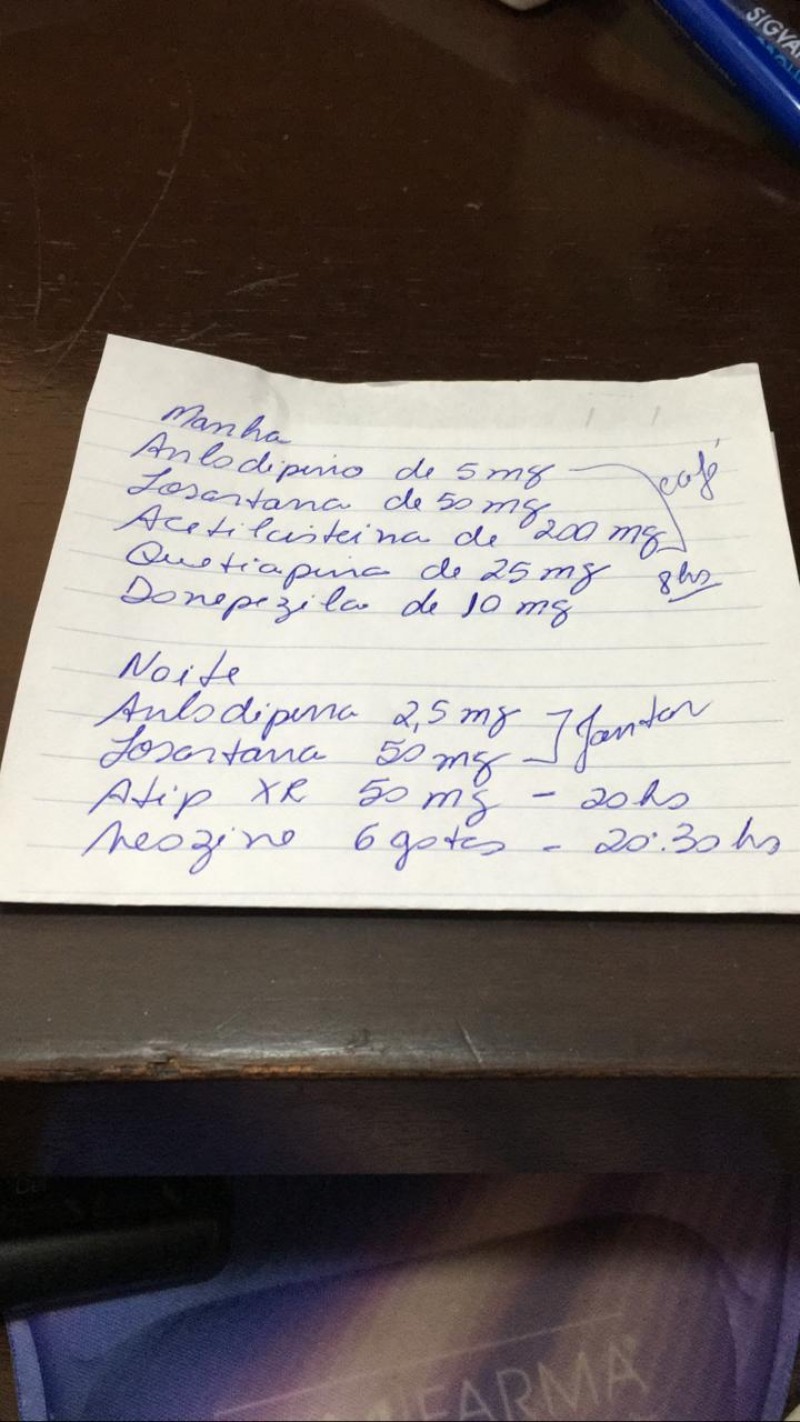 SIGVA
Manha
Anlodipino de 5 mg
café
Losartana de 50 mg
Acetilcisteina de 200 mg
Quetiapina de 25 mg
8hs
Donepezila de 10 mg
Noite
Anlodipina 2,5 mg
Jantar
Losartana 50 mg
Atip XR 50 mg - 20hs
Neozine 6 gotas - 20:30 hs
FARMA